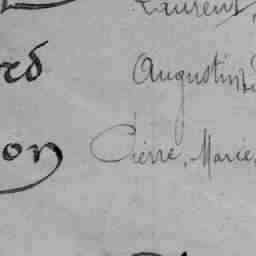 Laurent,
rd Augustine
on Pierre, Marie,